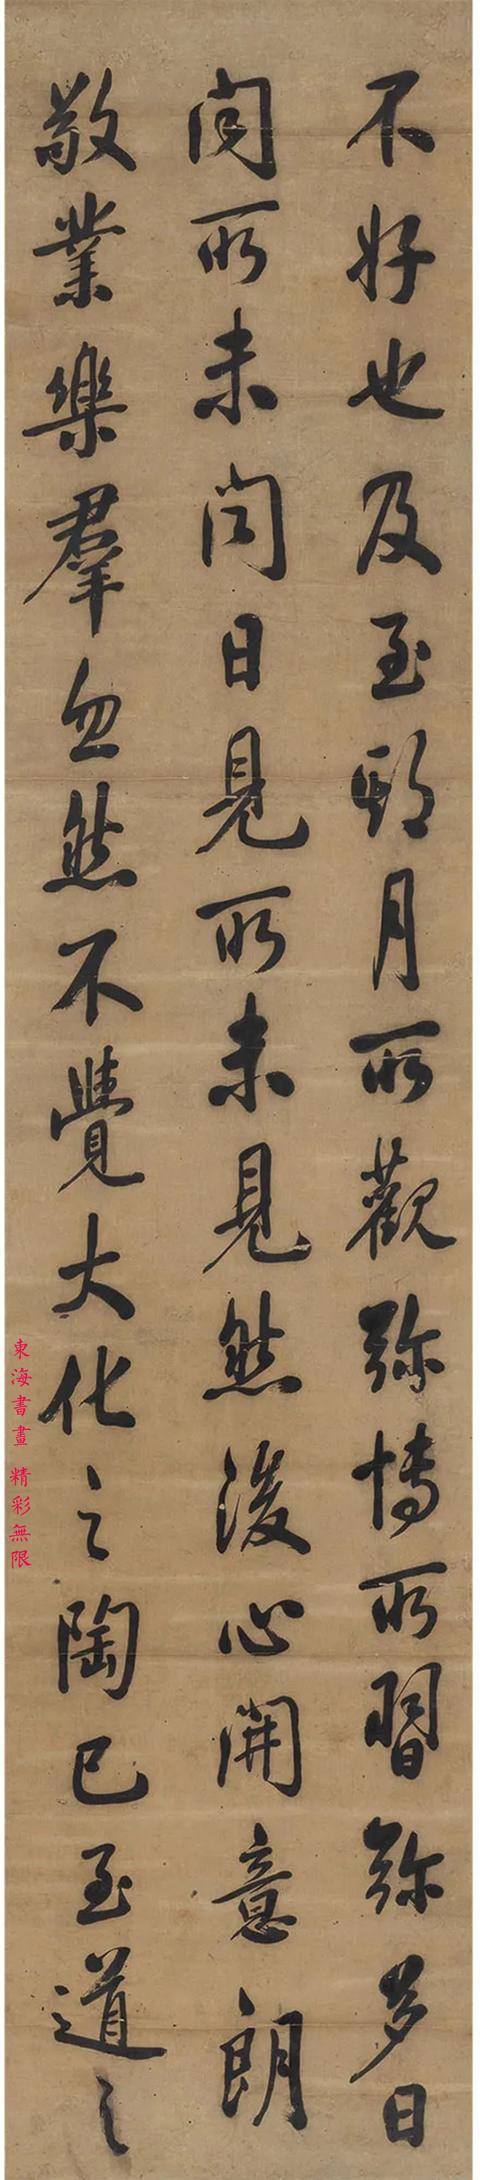 不好也及至期月所觀弥博所習弥多日
聞所未聞日見所未見然後心開意朗
敬業樂羣忽然不覺大化之陶已至道之
東海書畫 精彩無限